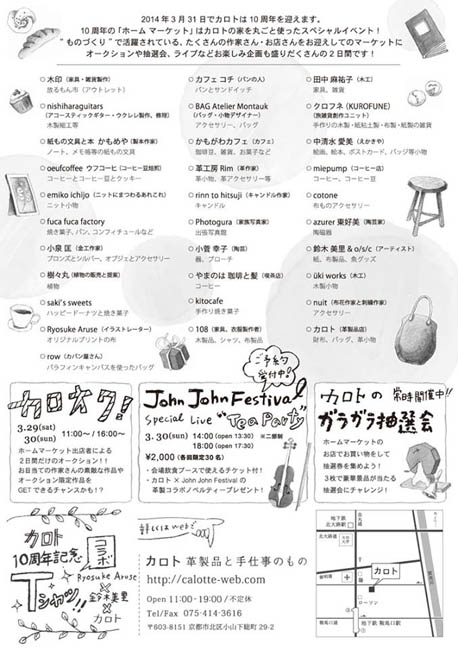 2014年3月31日でカロトは10周年を迎えます。
10周年の「ホーム マーケット」はカロトの家を丸ごと使ったスペシャルイベント!
"ものづくり"で活躍されている、たくさんの作家さん・お店さんをお迎えしてのマーケットに
オークションや抽選会、ライブなどお楽しみ企画も盛りだくさんの2日間です!
○ 木印(家具・雑貨製作)
放るもん市(アウトレット)
○ nishiharaguitars
(アコースティックギター・ウクレレ製作、修理)
木製細工等
○ 紙もの文具と本 かもめや(製本作家)
ノート、メモ帳等の紙もの文具
○ oeufcoffee ウフコーヒ(コーヒー豆焙煎)
コーヒーとコーヒー豆とクッキー
○ emiko ichijo(ニットにまつわるあれこれ)
ニット小物
○ fuca fuca factory
焼き菓子、パン、コンフィチュールなど
○ 小泉 匡(金工作家)
ブロンズとシルバー、オブジェとアクセサリー
○ 樹々丸(植物の販売と提案)
植物
○ saki's sweets
ハッピードーナツと焼き菓子
○ Ryosuke Aruse(イラストレーター)
オリジナルプリントの布
○ row(カバン屋さん)
パラフィンキャンバスを使ったバッグ
○ カフェ コチ(パンの人)
パンとサンドイッチ
○ BAG Atelier Montauk
(バッグ・小物デザイナー)
アクセサリー、バッグ
○ かもがわカフェ(カフェ)
珈琲豆、雑貨、お菓子など
○ 革工房 Rim(革作家)
革小物、革アクセサリー等
○ rinn to hitsuji(キャンドル作家)
キャンドル
○ Photogura(家族写真家)
出張写真館
○ 小菅 幸子(陶芸)
器、ブローチ
○ やまのは 珈琲と髪(喫茶店)
コーヒー
○ kitocafe
手作り焼き菓子
○ 108(家具、衣服製作者)
木製品、シャツ、布製品
○ 田中 麻祐子(木工)
家具、雑貨
○ クロフネ(KUROFUNE)
(旅雑貨創作ユニット)
手作りの木製・紙粘土製・布製・紙製の雑貨
○ 中清水 愛美(えかきや)
絵画、絵本、ポストカード、バッジ等小物
○ miepump(コーヒー店)
コーヒー、コーヒー豆
○ cotone
布ものアクセサリー
○ azurer 東好美(陶芸家)
陶磁器
○ 鈴木 美里 & o/s/c(アーティスト)
紙、布製品、魚グッズ
○ üki works(木工)
木製小物
○ nuit(布花作家と刺繍作家)
アクセサリー
○ カロト(革製品店)
財布、バッグ、革小物
カロオク!
3.29(sat)
30(sun) 11:00〜/16:00〜
ホームマーケット出店者による
2日間だけのオークション!!
お目当ての作家さんの素敵な作品や
オークション限定作品を
GETできるチャンスかも!?
ご予約
受付中!
John John Festival
Special Live "Tea Party"
3.30(sun) 14:00(open 13:30) ※二部制
18:00(open 17:30)
¥2,000(各回限定30名)
・会場飲食ブースで使えるチケット付!
・カロト × John John Festival の
革製コラボノベルティープレゼント!
カロトの
常時開催中!!
ガラガラ抽選会
ホームマーケットの
お店でお買い物をして
抽選券を集めよう!
3枚で豪華景品が当たる
抽選会にチャレンジ!
カロト
10周年記念
コラボ
Tシャツ!!
Ryosuke Aruse
×
鈴木美里
×
カロト
詳しくはwebで
カロト 革製品と手仕事のもの
http://calotte-web.com
Open 11:00-19:00/不定休
Tel/Fax 075-414-3616
〒603-8151 京都市北区小山下総町 29-2
地下鉄
北大路駅
北大路通
カロト
ローソン
地下鉄 鞍馬口駅
鞍馬口通